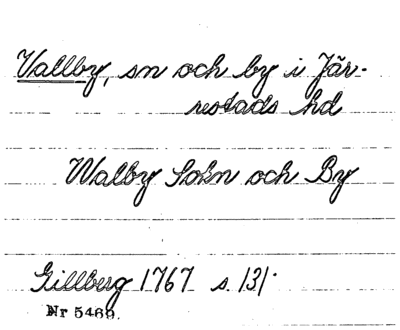 Vallby, sn och by i Jär-
restads hd
Walby Sokn och By
Gillberg 1767 s. 131.
Nr 5469.